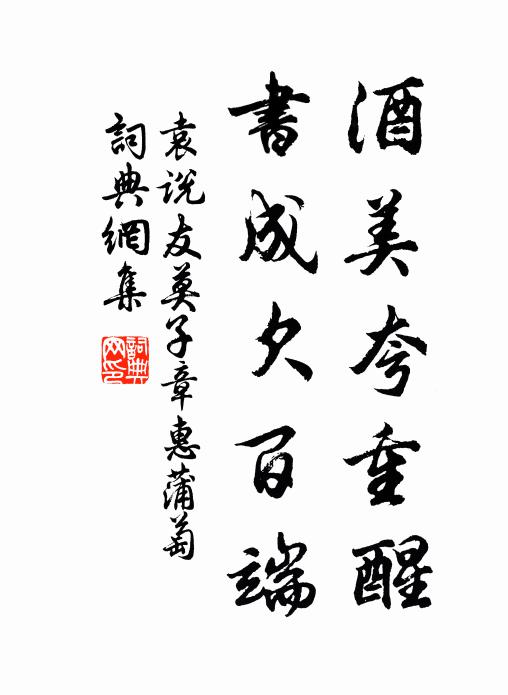 酒美夸重醒
書成欠百端
袁说友莫子章惠蒲萄
詞典網集
詞典網印